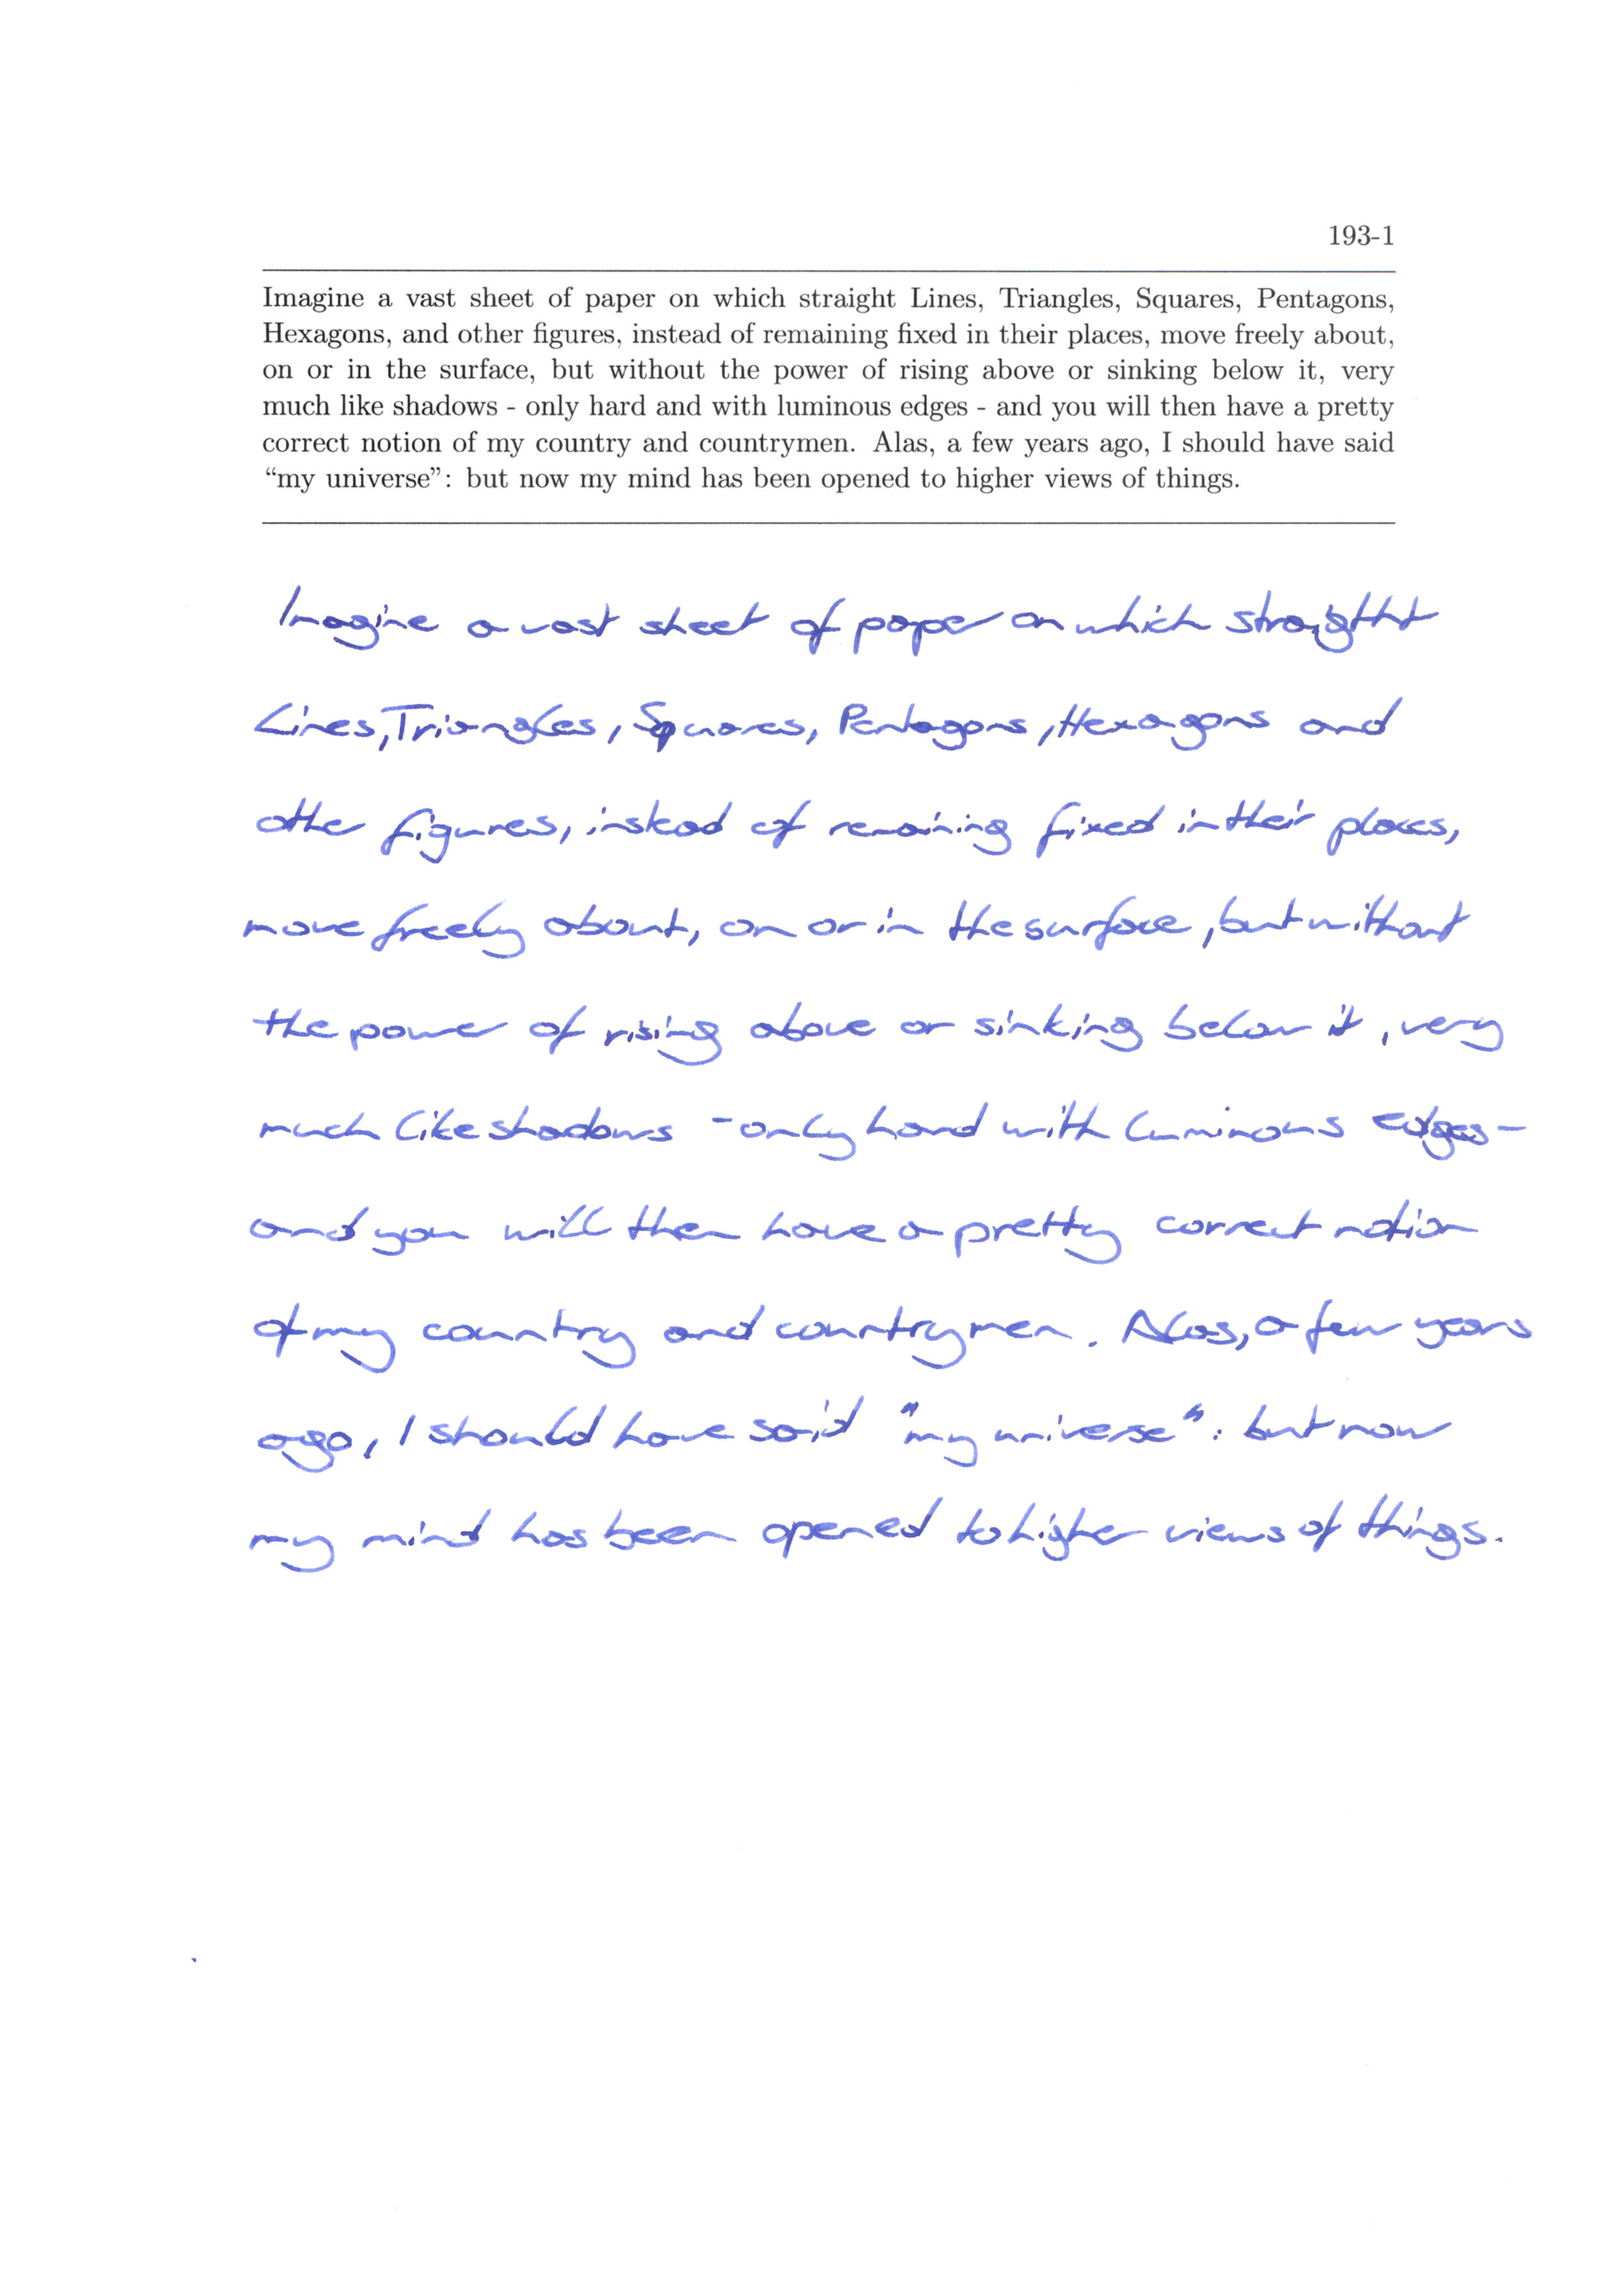 193-1
Imagine a vast sheet of paper on which straight Lines, Triangles, Squares, Pentagons,
Hexagons, and other figures, instead of remaining fixed in their places, move freely about,
on or in the surface, but without the power of rising above or sinking below it, very
much like shadows - only hard and with luminous edges - and you will then have a pretty
correct notion of my country and countrymen. Alas, a few years ago, I should have said
“my universe”: but now my mind has been opened to higher views of things.
Imagine a vast sheet of paper on which straight
Lines, Triangles, Squares, Pentagons, Hexagons and
other figures, instead of remaining fixed in their places,
move freely about, on or in the surface, but without
the power of rising above or sinking below it, very
much like shadows - only hard with luminous edges -
and you will then have a pretty correct notion
of my country and countrymen. Alas, a few years
ago, I should have said "my universe": but now
my mind has been opened to higher views of things.